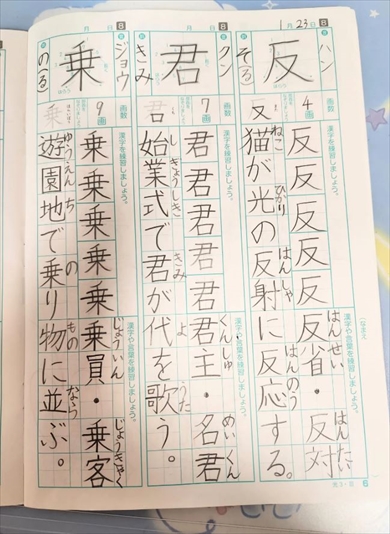 1月23日
反 ハン そ(る)
反 4画 画数
漢字を練習しましょう。
反反反反反
漢字や言葉を練習しましょう。
反省・反対
はんせい はんたい
猫が光の反射に反応する。
ねこ ひかり はんしゃ はんのう
月 日
君 クン きみ
君 7画 画数
漢字を練習しましょう。
君君君君君
漢字や言葉を練習しましょう。
君主・名君
くんしゅ めいくん
始業式で君が代を歌う。
しぎょうしき きみ よ うた
月 日
乗 ジョウ の(る)
乗 9画 画数
漢字を練習しましょう。
乗乗乗乗乗
漢字や言葉を練習しましょう。
乗員・乗客
じょういん じょうきゃく
遊園地で乗り物に並ぶ。
ゆうえんち の もの なら
6